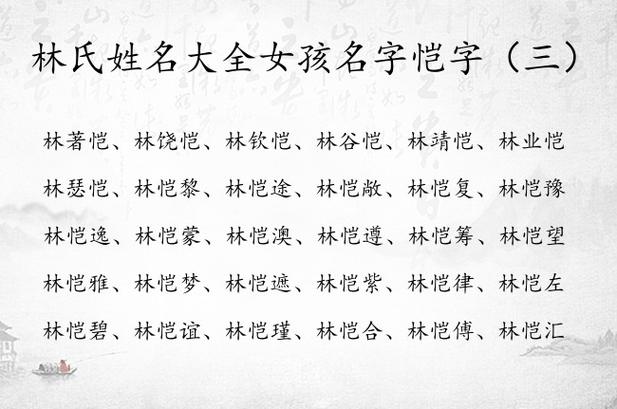 林氏姓名大全女孩名字恺字（三）
林著恺、林饶恺、林钦恺、林谷恺、林靖恺、林业恺
林瑟恺、林恺黎、林恺途、林恺敞、林恺复、林恺豫
林恺逸、林恺蒙、林恺澳、林恺遵、林恺筹、林恺望
林恺雅、林恺梦、林恺遮、林恺紫、林恺律、林恺左
林恺碧、林恺谊、林恺瑾、林恺合、林恺傅、林恺汇